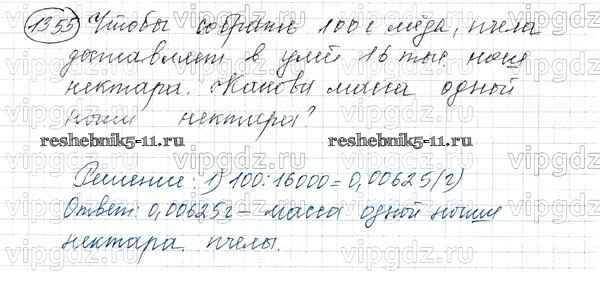 1355 Чтобы собрать 100 г мёда, пчела
доставляет в улей 16 тыс нош
нектара. Какова масса одной
ноши нектара?
reshebnik5-11.ru reshebnik5-11.ru
Решение: 1) 100:16000=0,00625(г)
Ответ: 0,00625г – масса одной ноши
нектара пчелы.
vipgdz vipgdz vipgdz